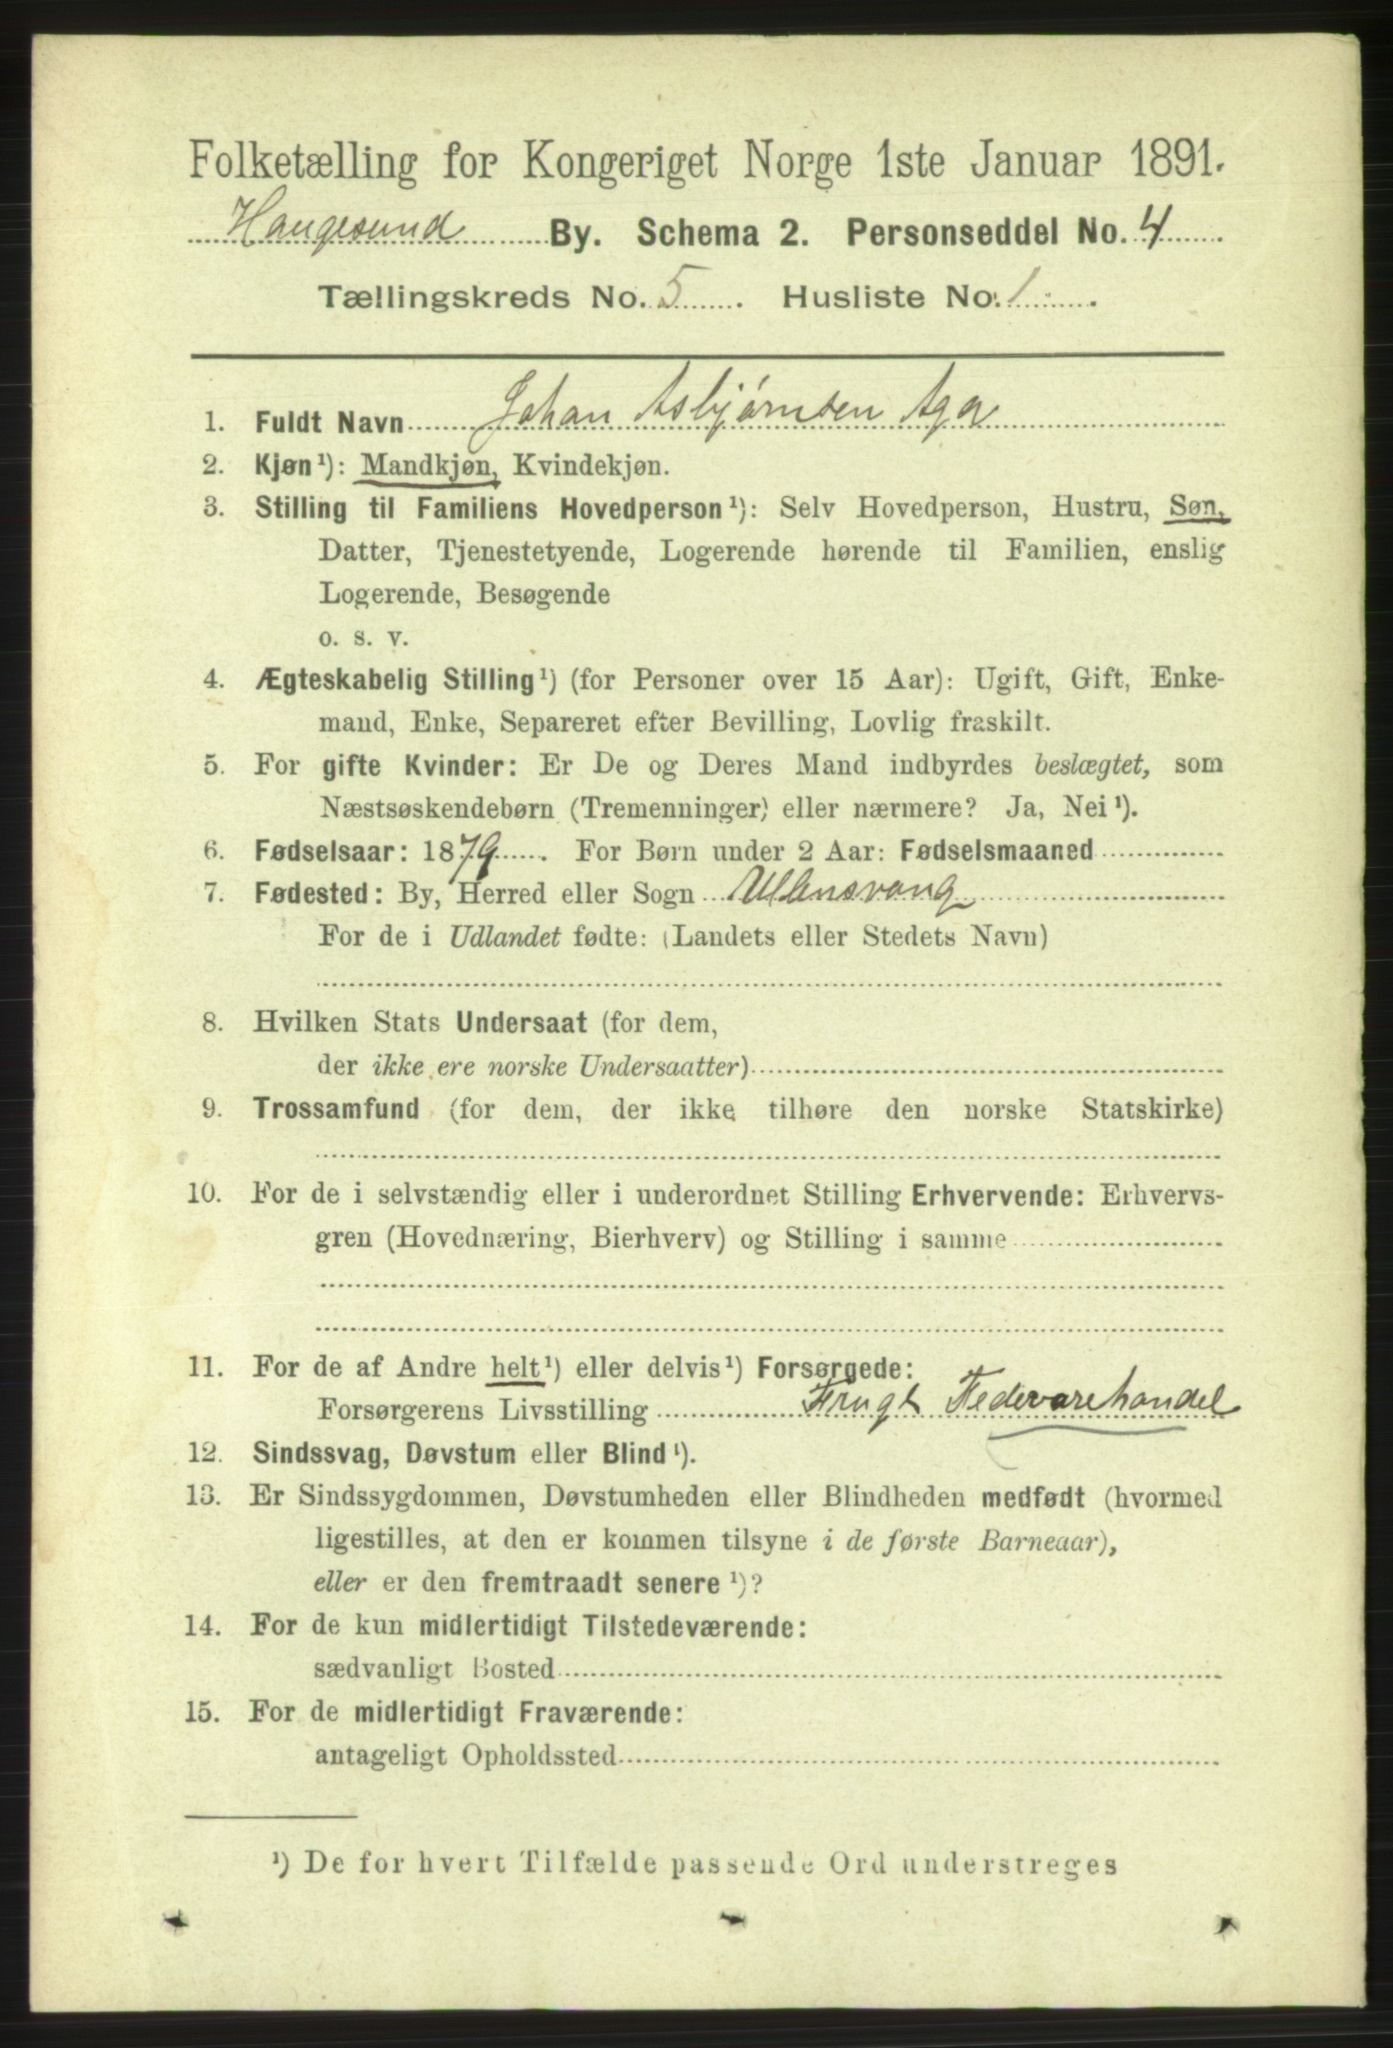 Folketælling for Kongeriget Norge 1ste Januar 1891.
Haugesund By. Schema 2. Personseddel No. 4
Tællingskreds No. 5. Husliste No. 1.
1. Fuldt Navn Johan Asbjørnsen Aga
2. Kjøn¹): Mandkjøn, Kvindekjøn.
3. Stilling til Familiens Hovedperson¹): Selv Hovedperson, Hustru, Søn,
Datter, Tjenestetyende, Logerende hørende til Familien, enslig
Logerende, Besøgende
o. s. v.
4. Ægteskabelig Stilling¹) (for Personer over 15 Aar): Ugift, Gift, Enke-
mand, Enke, Separeret efter Bevilling, Lovlig fraskilt.
5. For gifte Kvinder: Er De og Deres Mand indbyrdes beslægtet, som
Næstsøskendebørn (Tremenninger) eller nærmere? Ja, Nei¹).
6. Fødselsaar: 1879. For Børn under 2 Aar: Fødselsmaaned
7. Fødested: By, Herred eller Sogn Ullensvang
For de i Udlandet fødte: (Landets eller Stedets Navn)
8. Hvilken Stats Undersaat (for dem,
der ikke ere norske Undersaatter)
9. Trossamfund (for dem, der ikke tilhøre den norske Statskirke)
10. For de i selvstændig eller i underordnet Stilling Erhvervende: Erhvervs-
gren (Hovednæring, Bierhverv) og Stilling i samme
11. For de af Andre helt¹) eller delvis¹) Forsørgede:
Forsørgerens Livsstilling Frugt Fedevarehandel
12. Sindssvag, Døvstum eller Blind¹).
13. Er Sindssygdommen, Døvstumheden eller Blindheden medfødt (hvormed
ligestilles, at den er kommen tilsyne i de første Barneaar),
eller er den fremtraadt senere¹)?
14. For de kun midlertidigt Tilstedeværende:
sædvanligt Bosted
15. For de midlertidigt Fraværende:
antageligt Opholdssted
¹) De for hvert Tilfælde passende Ord understreges